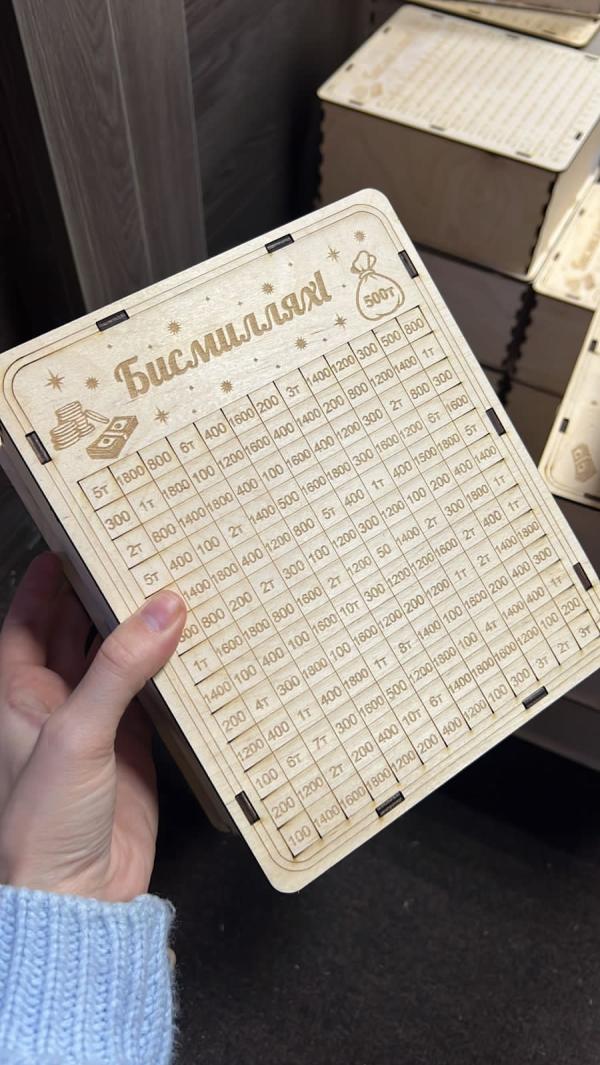 Бисмиллях!
500т
5т 1800 800 6т 400 1600 200 3т 1400 1200 300 500 800
300 1т 1800 100 1200 1600 400 1400 200 800 1200 1400 1т
2т 800 1400 1800 400 100 1600 400 1200 300 2т 800 300
5т 400 100 2т 1400 500 1600 1800 300 1600 1200 6т 1600
1400 1800 400 1200 800 5т 400 1т 400 1500 1800 5т
800 200 2т 300 100 1200 300 1200 100 200 400 1400
1т 1600 1800 800 1600 2т 1200 50 1400 2т 300 1800 1т
1400 100 400 100 1600 10т 300 1200 1200 1600 2т 400 1т
200 4т 300 1800 100 1600 1200 1200 1200 1т 2т 1400 1800
1200 400 1т 400 1800 1т 8т 1400 100 1600 200 400 300
100 6т 7т 300 1600 500 1200 6т 100 4т 1400 400 1т
200 1200 2т 200 400 10т 6т 1400 1800 1600 1200 100 200
100 1400 1600 1800 1200 200 400 1200 100 300 3т 2т 3т